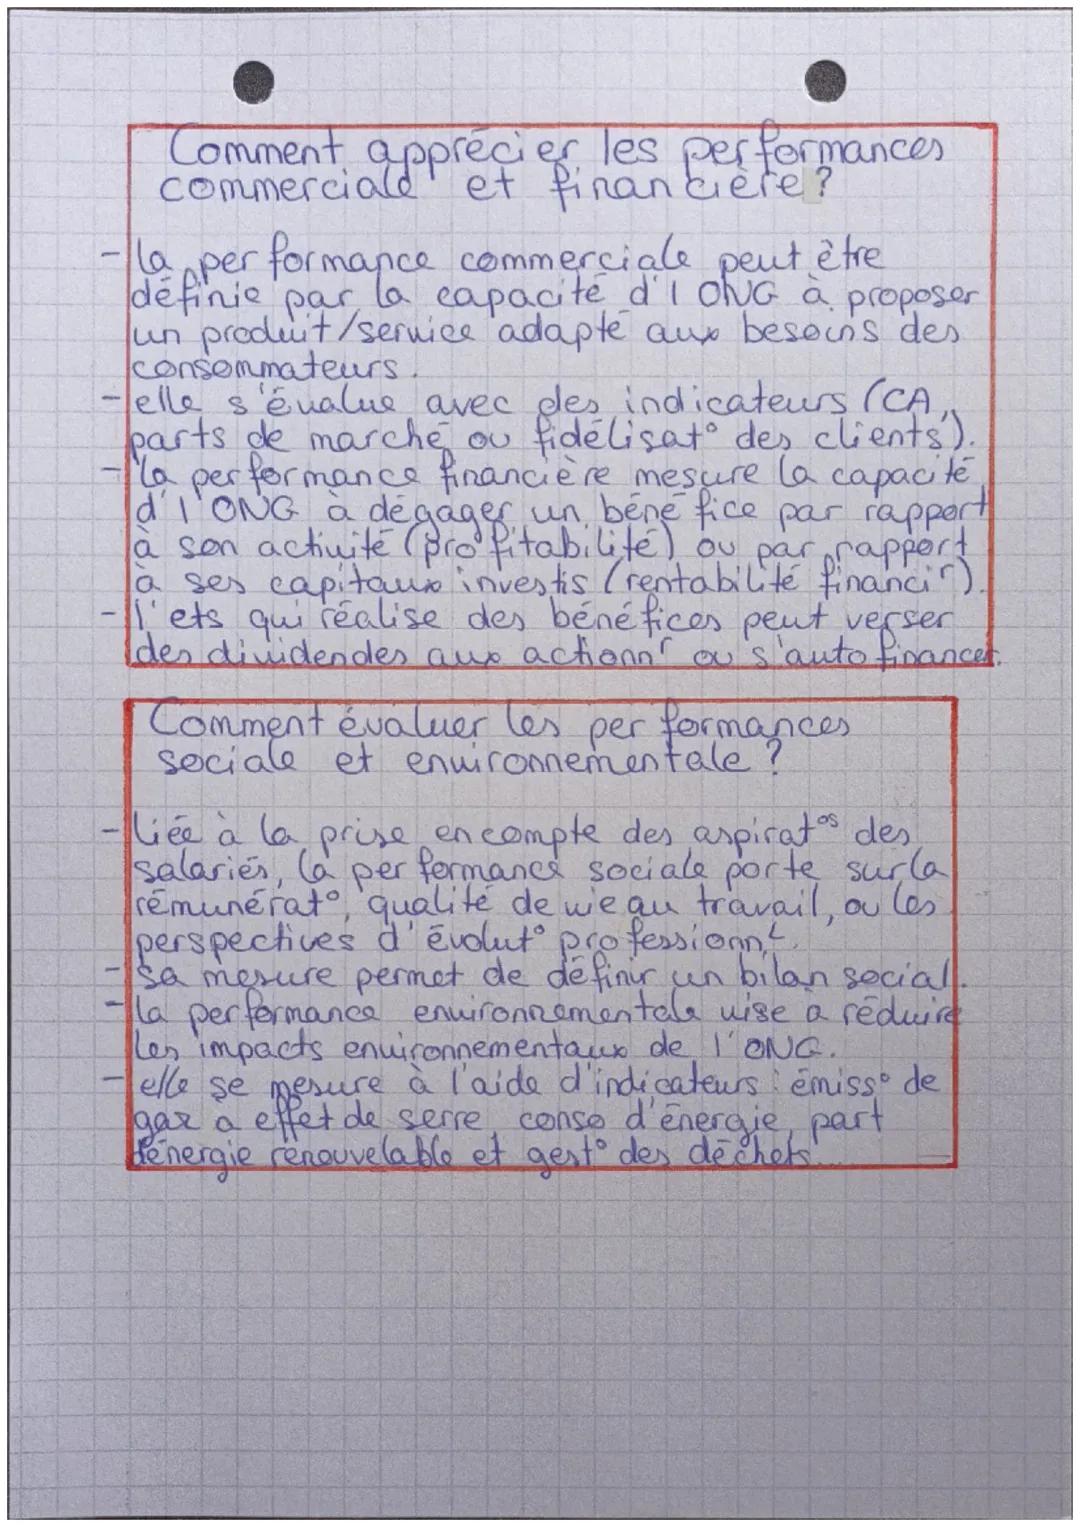 Comment apprécier les performances
commerciale et financière ?
- la performance commerciale peut être
définie par la capacité d'1 ONG à proposer
un produit/service adapté aux besoins des
consommateurs.
- elle s'évalue avec des indicateurs (CA,
parts de marché ou fidélisat° des clients).
- la performance financière mesure la capacité
d'1 ONG à dégager un bénéfice par rapport
à son activité (profitabilité) ou par rapport
à ses capitaux investis (rentabilité financiʳ).
- l'ets qui réalise des bénéfices peut verser
des dividendes aux actionnʳ ou s'autofinancer.
Comment évaluer les performances
sociale et environnementale ?
- liée à la prise en compte des aspirat°ˢ des
salariés, la performance sociale porte sur la
rémunérat°, qualité de vie au travail, ou les
perspectives d'évolut° professionnᴸ.
- sa mesure permet de définir un bilan social.
- la performance environnementale vise à réduire
les impacts environnementaux de l'ONG.
- elle se mesure à l'aide d'indicateurs : émiss° de
gaz a effet de serre, conso d'énergie, part
d'énergie renouvelable et gest° des déchets...